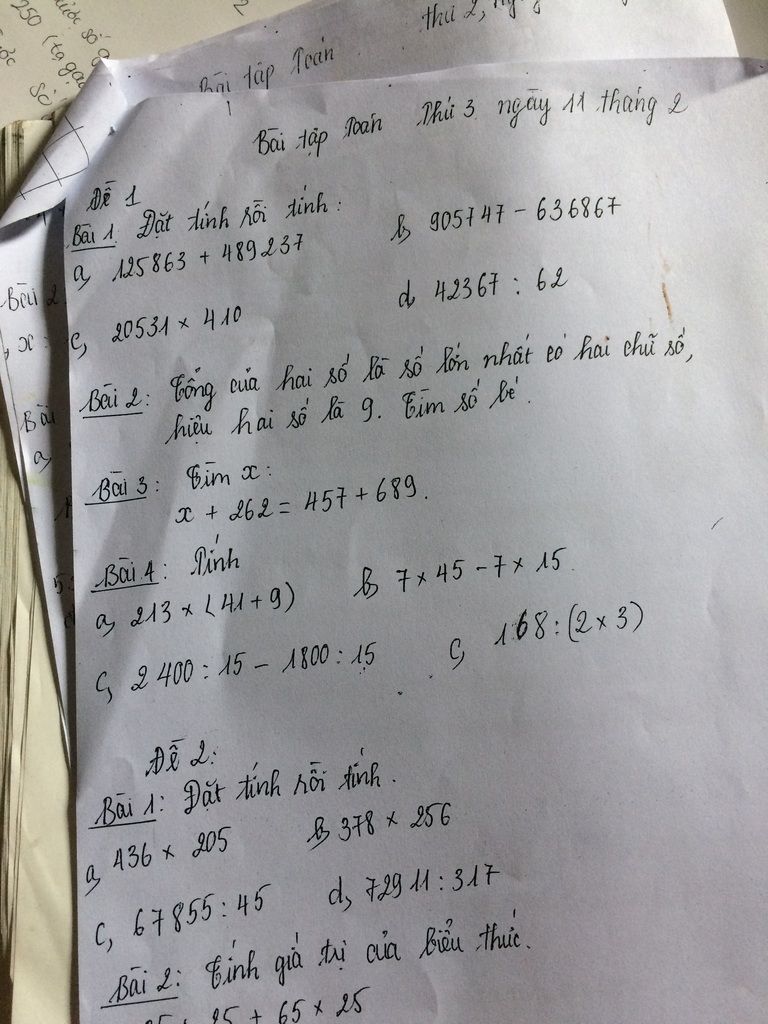 250
2
thứ 2,
Bài tập Toán
Bài tập Toán Thứ 3 ngày 11 tháng 2
Đề 1
Bài 1: Đặt tính rồi tính:
a, 125863 + 489237 b, 905747 - 636867
c, 20531 × 410 d, 42367 : 62
Bài 2: Tổng của hai số là số lớn nhất có hai chữ số,
hiệu hai số là 9. Tìm số bé.
Bài 3: Tìm x:
x + 262 = 457 + 689.
Bài 4: Tính
a, 213 × (41 + 9) b, 7 × 45 - 7 × 15.
c, 2400 : 15 - 1800 : 15 c, 168 : (2 × 3)
Đề 2:
Bài 1: Đặt tính rồi tính.
a, 436 × 205 b, 378 × 256
c, 67855 : 45 d, 72911 : 317
Bài 2: Tính giá trị của biểu thức.
+ 65 × 25
Bài 2
Bài
a,